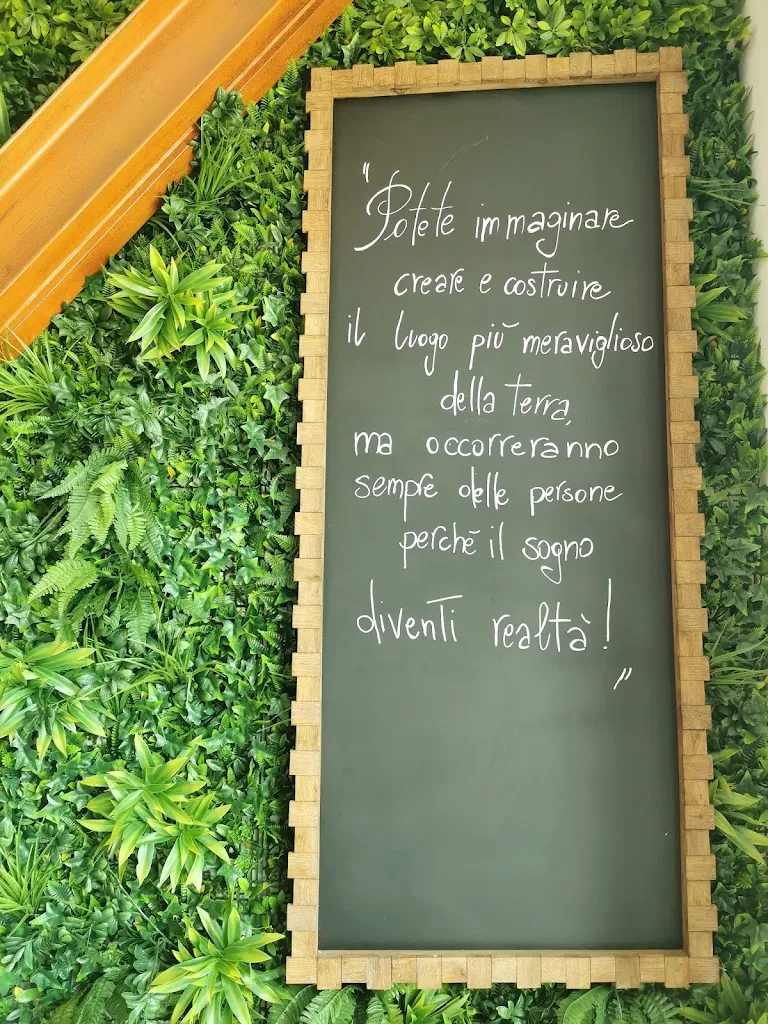 "Potete immaginare
creare e costruire
il luogo più meraviglioso
della terra,
ma occorreranno
sempre delle persone
perché il sogno
diventi realtà!
"